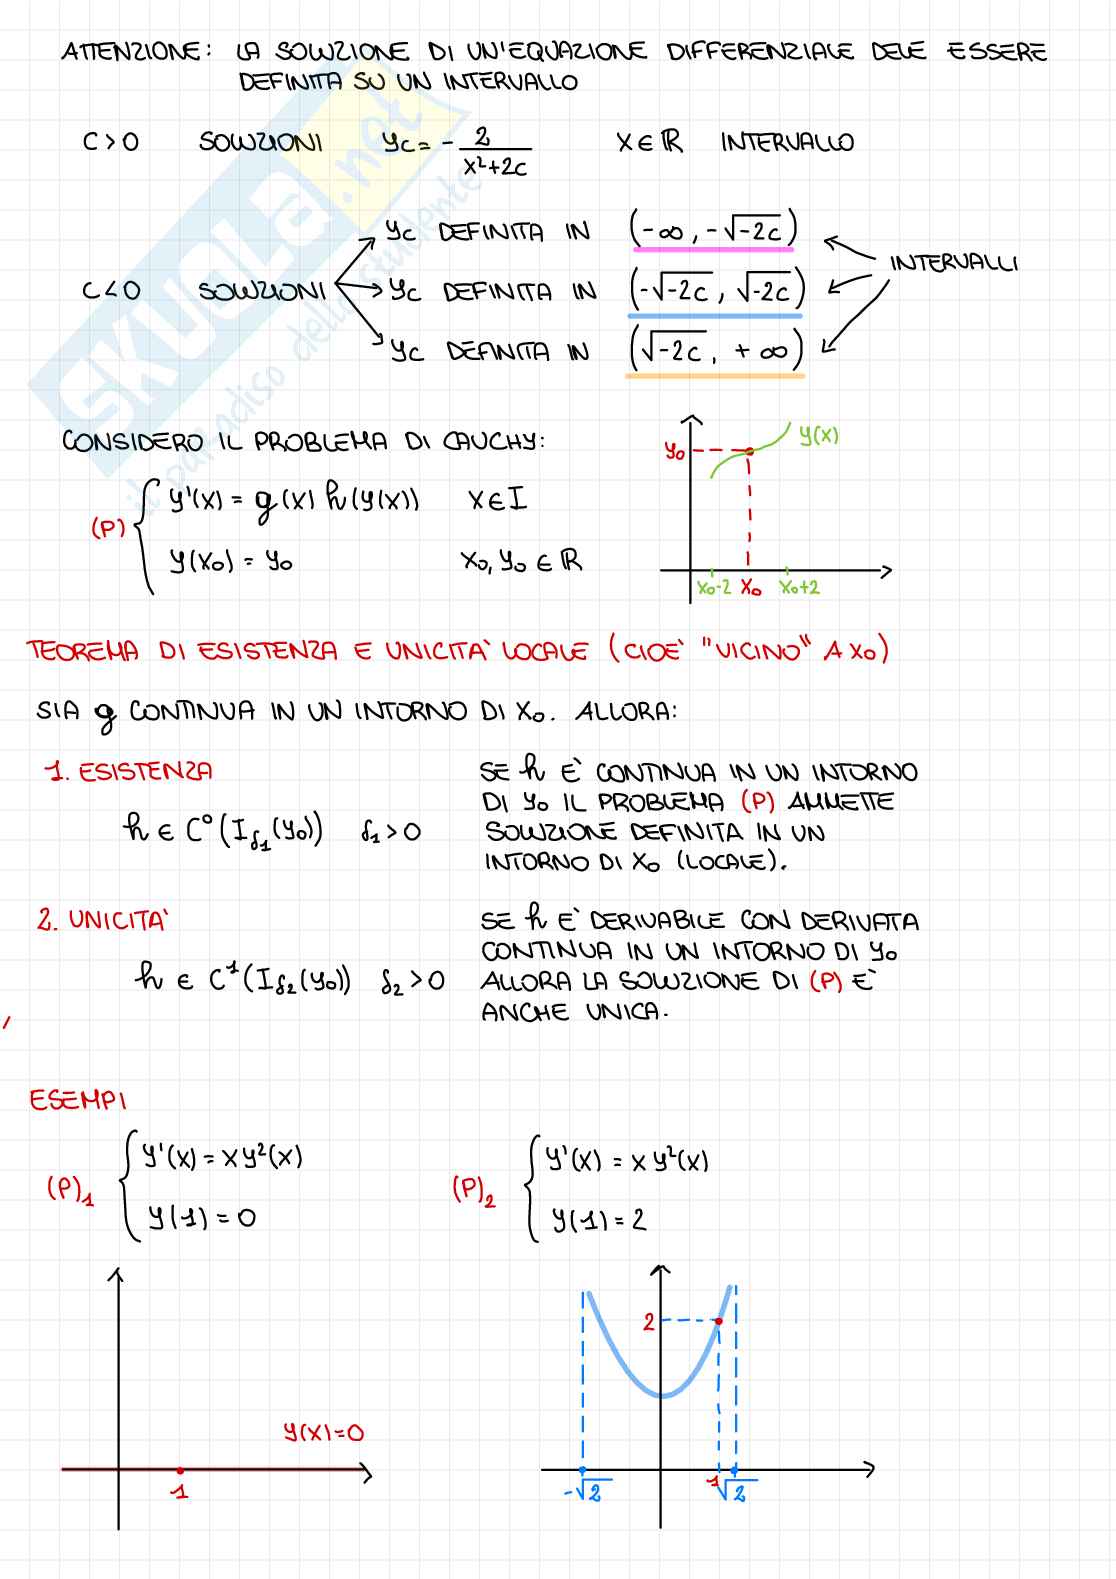 ATTENZIONE: LA SOLUZIONE DI UN'EQUAZIONE DIFFERENZIALE DEVE ESSERE
DEFINITA SU UN INTERVALLO
C > 0 SOLUZIONI y_C = - 2/(x²+2C) x ∈ ℝ INTERVALLO
y_C DEFINITA IN (-∞, -√-2C)
INTERVALLI
C < 0 SOLUZIONI y_C DEFINITA IN (-√-2C, √-2C)
y_C DEFINITA IN (√-2C, +∞)
SKUOLA.net
il paradiso dello studente
CONSIDERO IL PROBLEMA DI CAUCHY:
(P) { y'(x) = g(x) h(y(x)) x ∈ I
y(x₀) = y₀ x₀, y₀ ∈ ℝ
y(x)
y₀
x₀-2 x₀ x₀+2
TEOREMA DI ESISTENZA E UNICITÀ LOCALE (CIOÈ "VICINO" A x₀)
SIA g CONTINUA IN UN INTORNO DI x₀. ALLORA:
1. ESISTENZA
h ∈ C⁰(I_δ₁(y₀)) δ₁ > 0
SE h È CONTINUA IN UN INTORNO
DI y₀ IL PROBLEMA (P) AMMETTE
SOLUZIONE DEFINITA IN UN
INTORNO DI x₀ (LOCALE).
2. UNICITÀ
h ∈ C¹(I_δ₂(y₀)) δ₂ > 0
SE h È DERIVABILE CON DERIVATA
CONTINUA IN UN INTORNO DI y₀
ALLORA LA SOLUZIONE DI (P) È
ANCHE UNICA.
ESEMPI
(P)₁ { y'(x) = x y²(x)
y(1) = 0
(P)₂ { y'(x) = x y²(x)
y(1) = 2
y(x)=0
1
2
-√2 1 √2